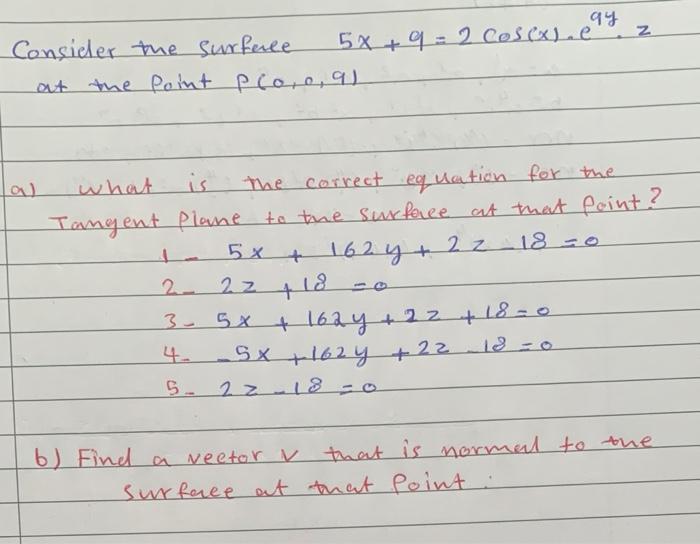 Consider the surface 5x + 9 = 2 cos(x). e^9y. z
at the Point P(0,0,9)
a) what is the correct equation for the
Tangent Plane to the surface at that Point?
1- 5x + 162y + 2z - 18 = 0
2- 2z + 18 = 0
3- 5x + 162y + 2z + 18 = 0
4- -5x + 162y + 2z - 18 = 0
5- 2z - 18 = 0
b) Find a vector v that is normal to the
surface at that Point.